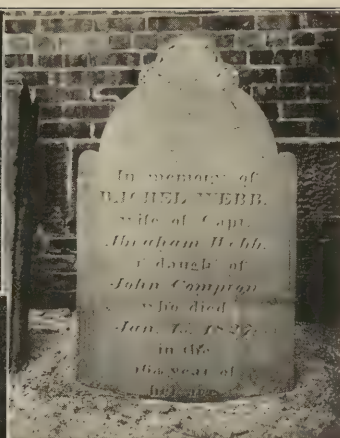 In memory of
RACHEL WEBB.
wife of Capt.
Abraham Webb.
& daugh of
John Compton
who died
Jan.
in the
year of
her age